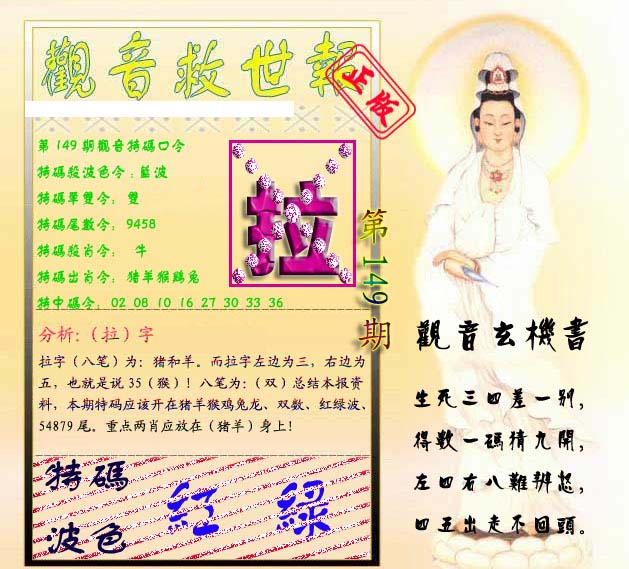 觀音救世報
正版
第149期觀音特碼口令
特碼殺波色令:藍波
特碼單雙令: 雙
特碼尾數令: 9458
特碼殺肖令: 牛
特碼出肖令: 猪羊猴鷄兔
特中碼令: 02 08 10 16 27 30 33 36
拉
第149期
分析:（拉）字
拉字（八笔）为：猪和羊。而拉字左边为三，右边为
五，也就是说35（猴）！八笔为：（双）总结本报资
料，本期特码应该开在猪羊猴鸡兔龙、双数、红绿波、
54879尾。重点两肖应放在（猪羊）身上！
特碼
波色
紅 綠
觀音玄機書
生死三四差一别，
得數一碼猜九開，
左四右八難辨忿，
四五出走不回頭。